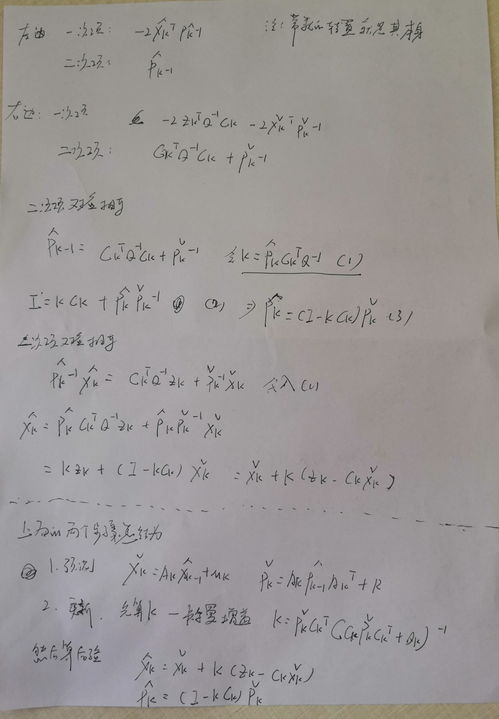 左边 一次项: -2x̂ₖᵀp̂ₖ⁻¹ 注: 常数的转置就是其本身
二次项: p̂ₖ₋₁
右边: 一次项 -2zₖᵀQ⁻¹Cₖ - 2x̌ₖᵀp̌ₖ⁻¹
二次项: CₖᵀQ⁻¹Cₖ + p̌ₖ⁻¹
二次项对应相等
p̂ₖ₋₁ = CₖᵀQ⁻¹Cₖ + p̌ₖ⁻¹ 令k = p̂ₖCₖᵀQ⁻¹ (1)
I = kCₖ + p̂ₖp̌ₖ⁻¹ (2) ⇒ p̂ₖ = (I-kCₖ)p̌ₖ (3)
一次项对应相等
p̂ₖ⁻¹x̂ₖ = CₖᵀQ⁻¹zₖ + p̌ₖ⁻¹x̌ₖ 代入(1)
x̂ₖ = p̂ₖCₖᵀQ⁻¹zₖ + p̂ₖp̌ₖ⁻¹x̌ₖ
= kzₖ + (I-kCₖ)x̌ₖ = x̌ₖ + k(zₖ - Cₖx̌ₖ)
上面的两个步骤总结为
1. 预测 x̌ₖ = Aₖx̂ₖ₋₁ + uₖ p̌ₖ = Aₖp̂ₖ₋₁Aₖᵀ + R
2. 更新, 先算k 一 卡尔曼增益 k = p̌ₖCₖᵀ(Cₖp̌ₖCₖᵀ + Qₖ)⁻¹
然后算后验 x̂ₖ = x̌ₖ + k(zₖ - Cₖx̌ₖ)
p̂ₖ = (I-kCₖ)p̌ₖ